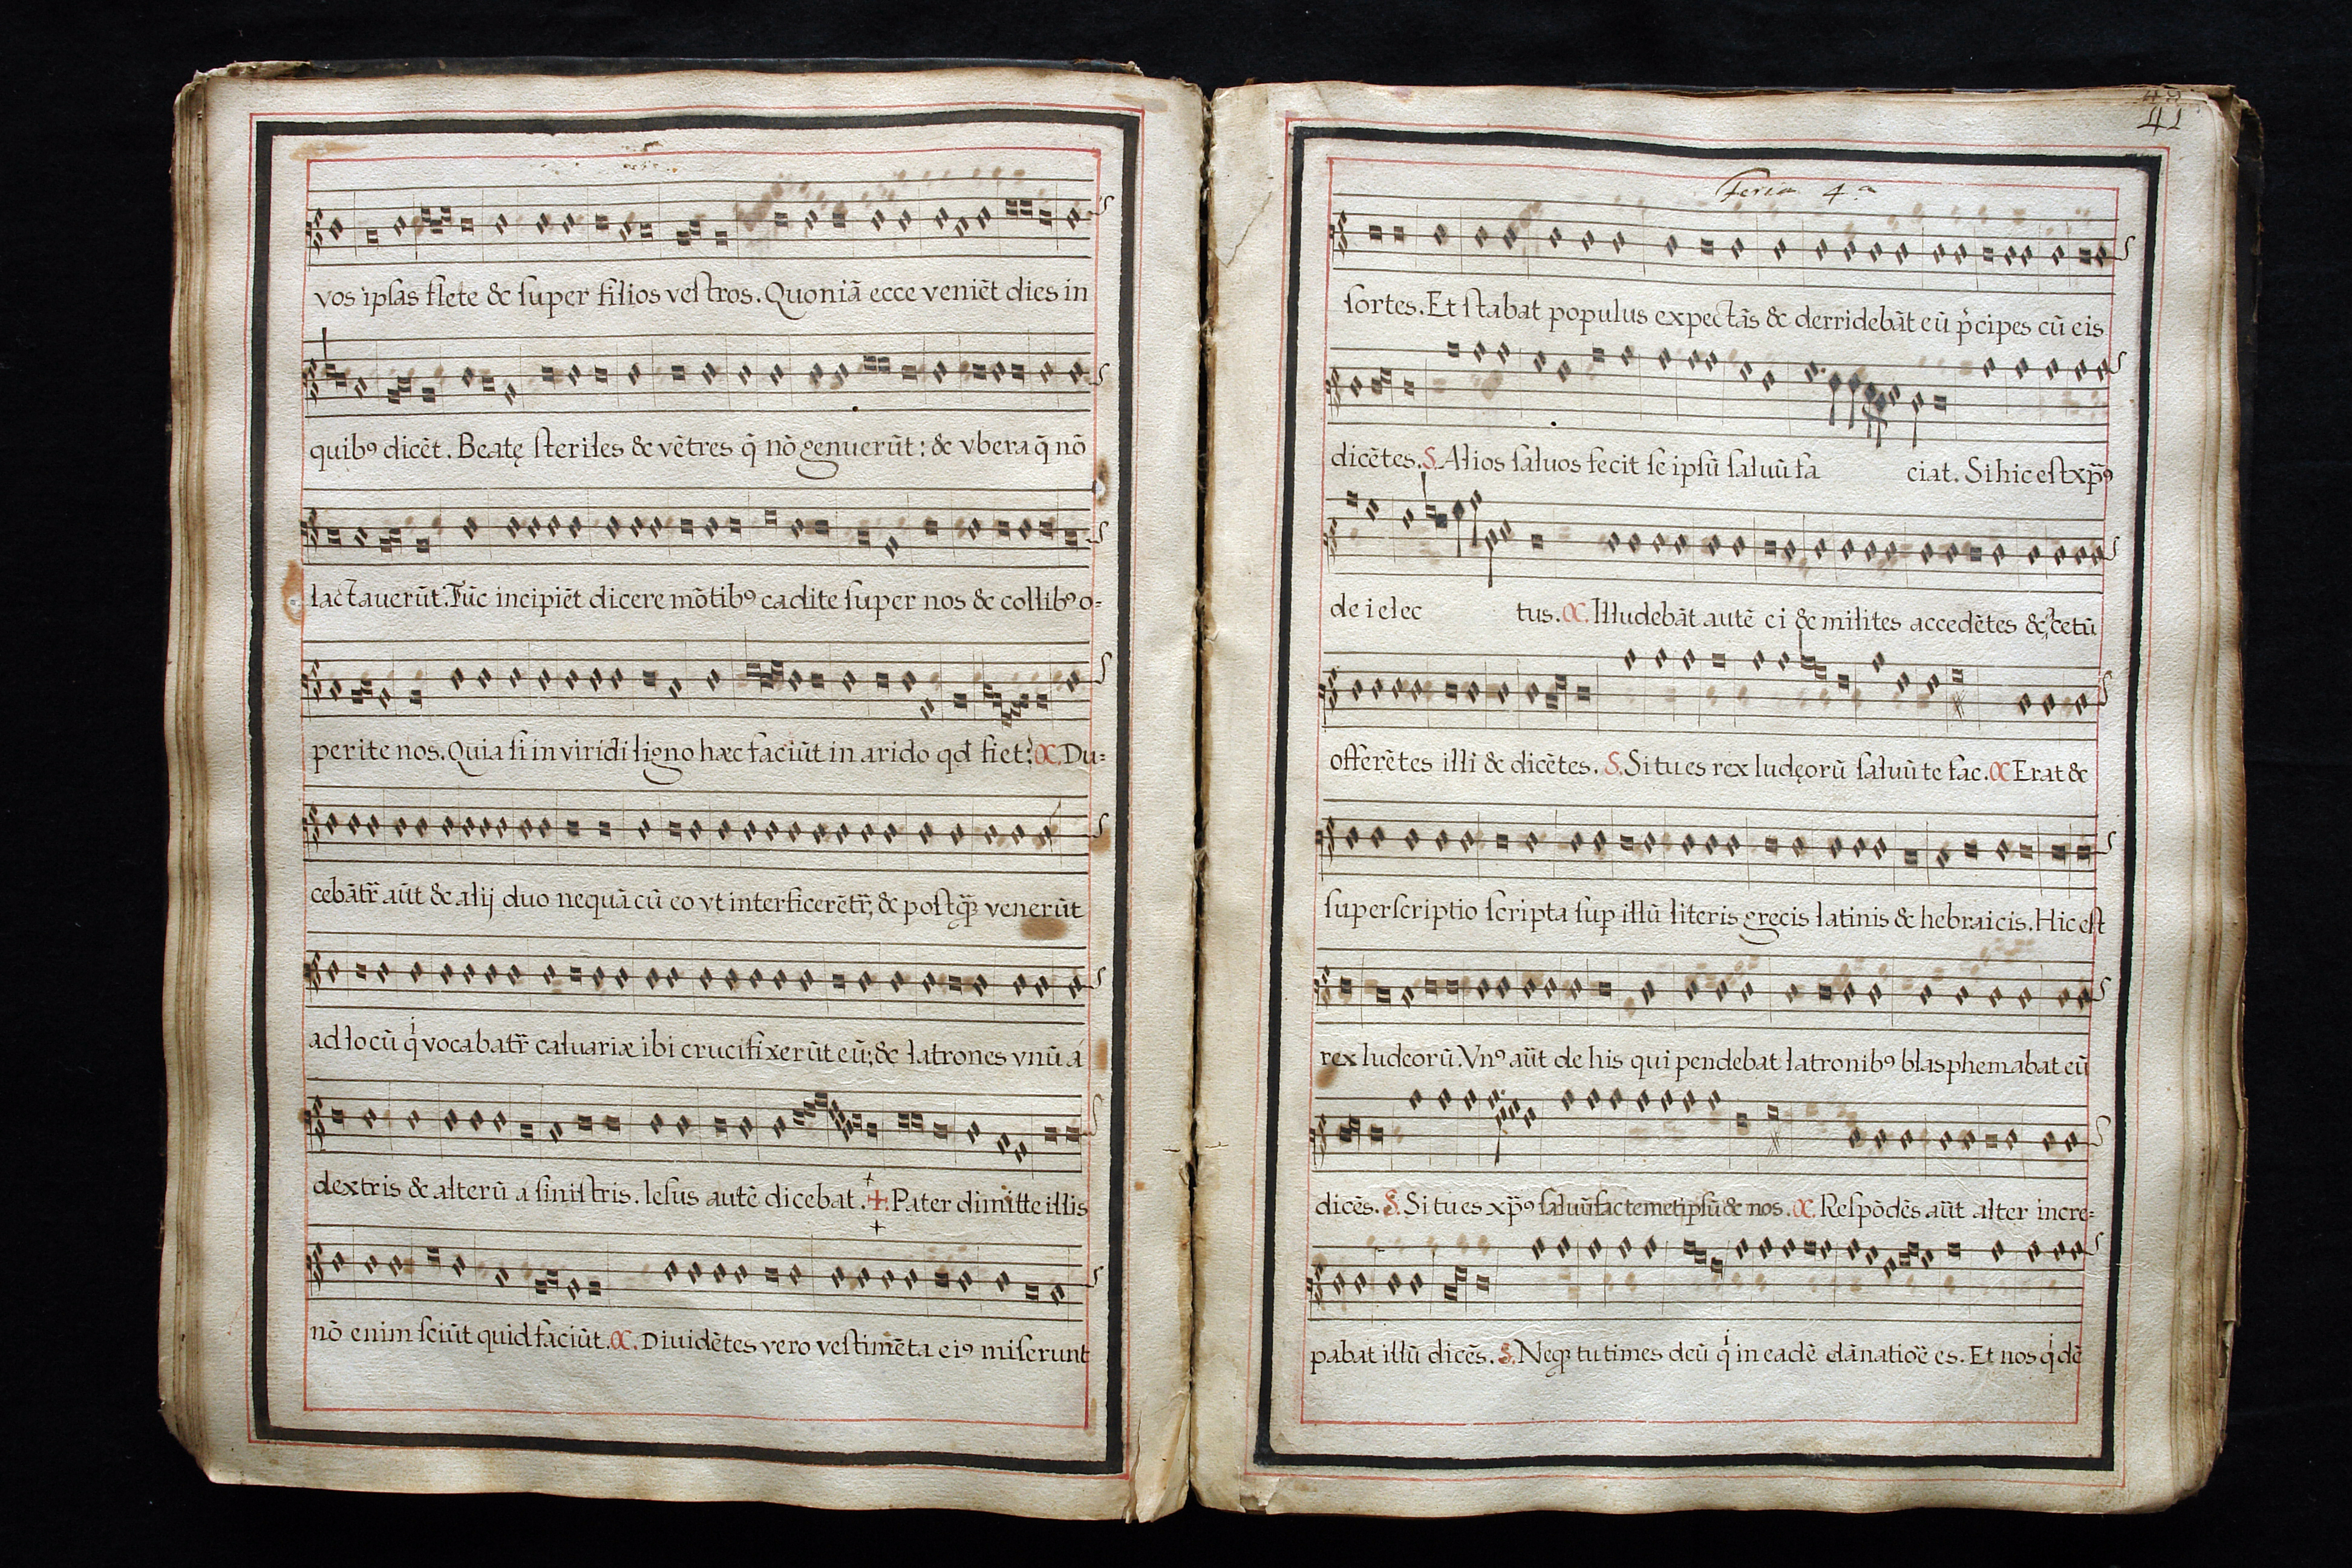 vos ipsas flete & super filios vestros. Quoniā ecce veniēt dies in
quibꝰ dicēt. Beatę steriles & vētres q̄ nō genuerūt: & vbera q̄ nō
lactauerūt. Tūc incipiēt dicere mōtibꝰ cadite super nos & collibꝰ o=
perite nos. Quia si in viridi ligno hæc faciūt in arido qđ fiet? C. Du=
cebātr̄ aūt & alij duo nequā cū eo vt interficerētr̄, & postꝗ̃ venerūt
ad locū q vocabatr̄ caluariæ ibi crucifixerūt eū; & latrones vnū á
dextris & alterū a sinistris. Iesus autē dicebat. ✠. Pater dimitte illis
nō enim sciūt quid faciūt. C. Diuidētes vero vestimēta eiꝰ miserunt
41
feria 4.ª
sortes. Et stabat populus expectās & derridebāt eū p̍cipes cū eis
dicētes. S. Alios saluos fecit se ipsū saluū fa ciat. Si hic est xp̄ꝰ
dei elec tus. C. Illudebāt autē ei & milites accedētes & acetū
offerētes illi & dicētes. S. Si tu es rex Iudęorū saluū te fac. C Erat &
superscriptio scripta sup̱ illū literis gręcis latinis & hebraicis. Hic est
rex Iudeorū. Vnꝰ aūt de his qui pendebat latronibꝰ blasphemabat eū
dicēs. S. Si tu es xp̄ꝰ saluū fac temetipsū & nos. C. Respōdēs aūt alter incre=
pabat illū dicēs. S. Neqꝫ tu times deū q in eadē dānatiōe es. Et nos q dē